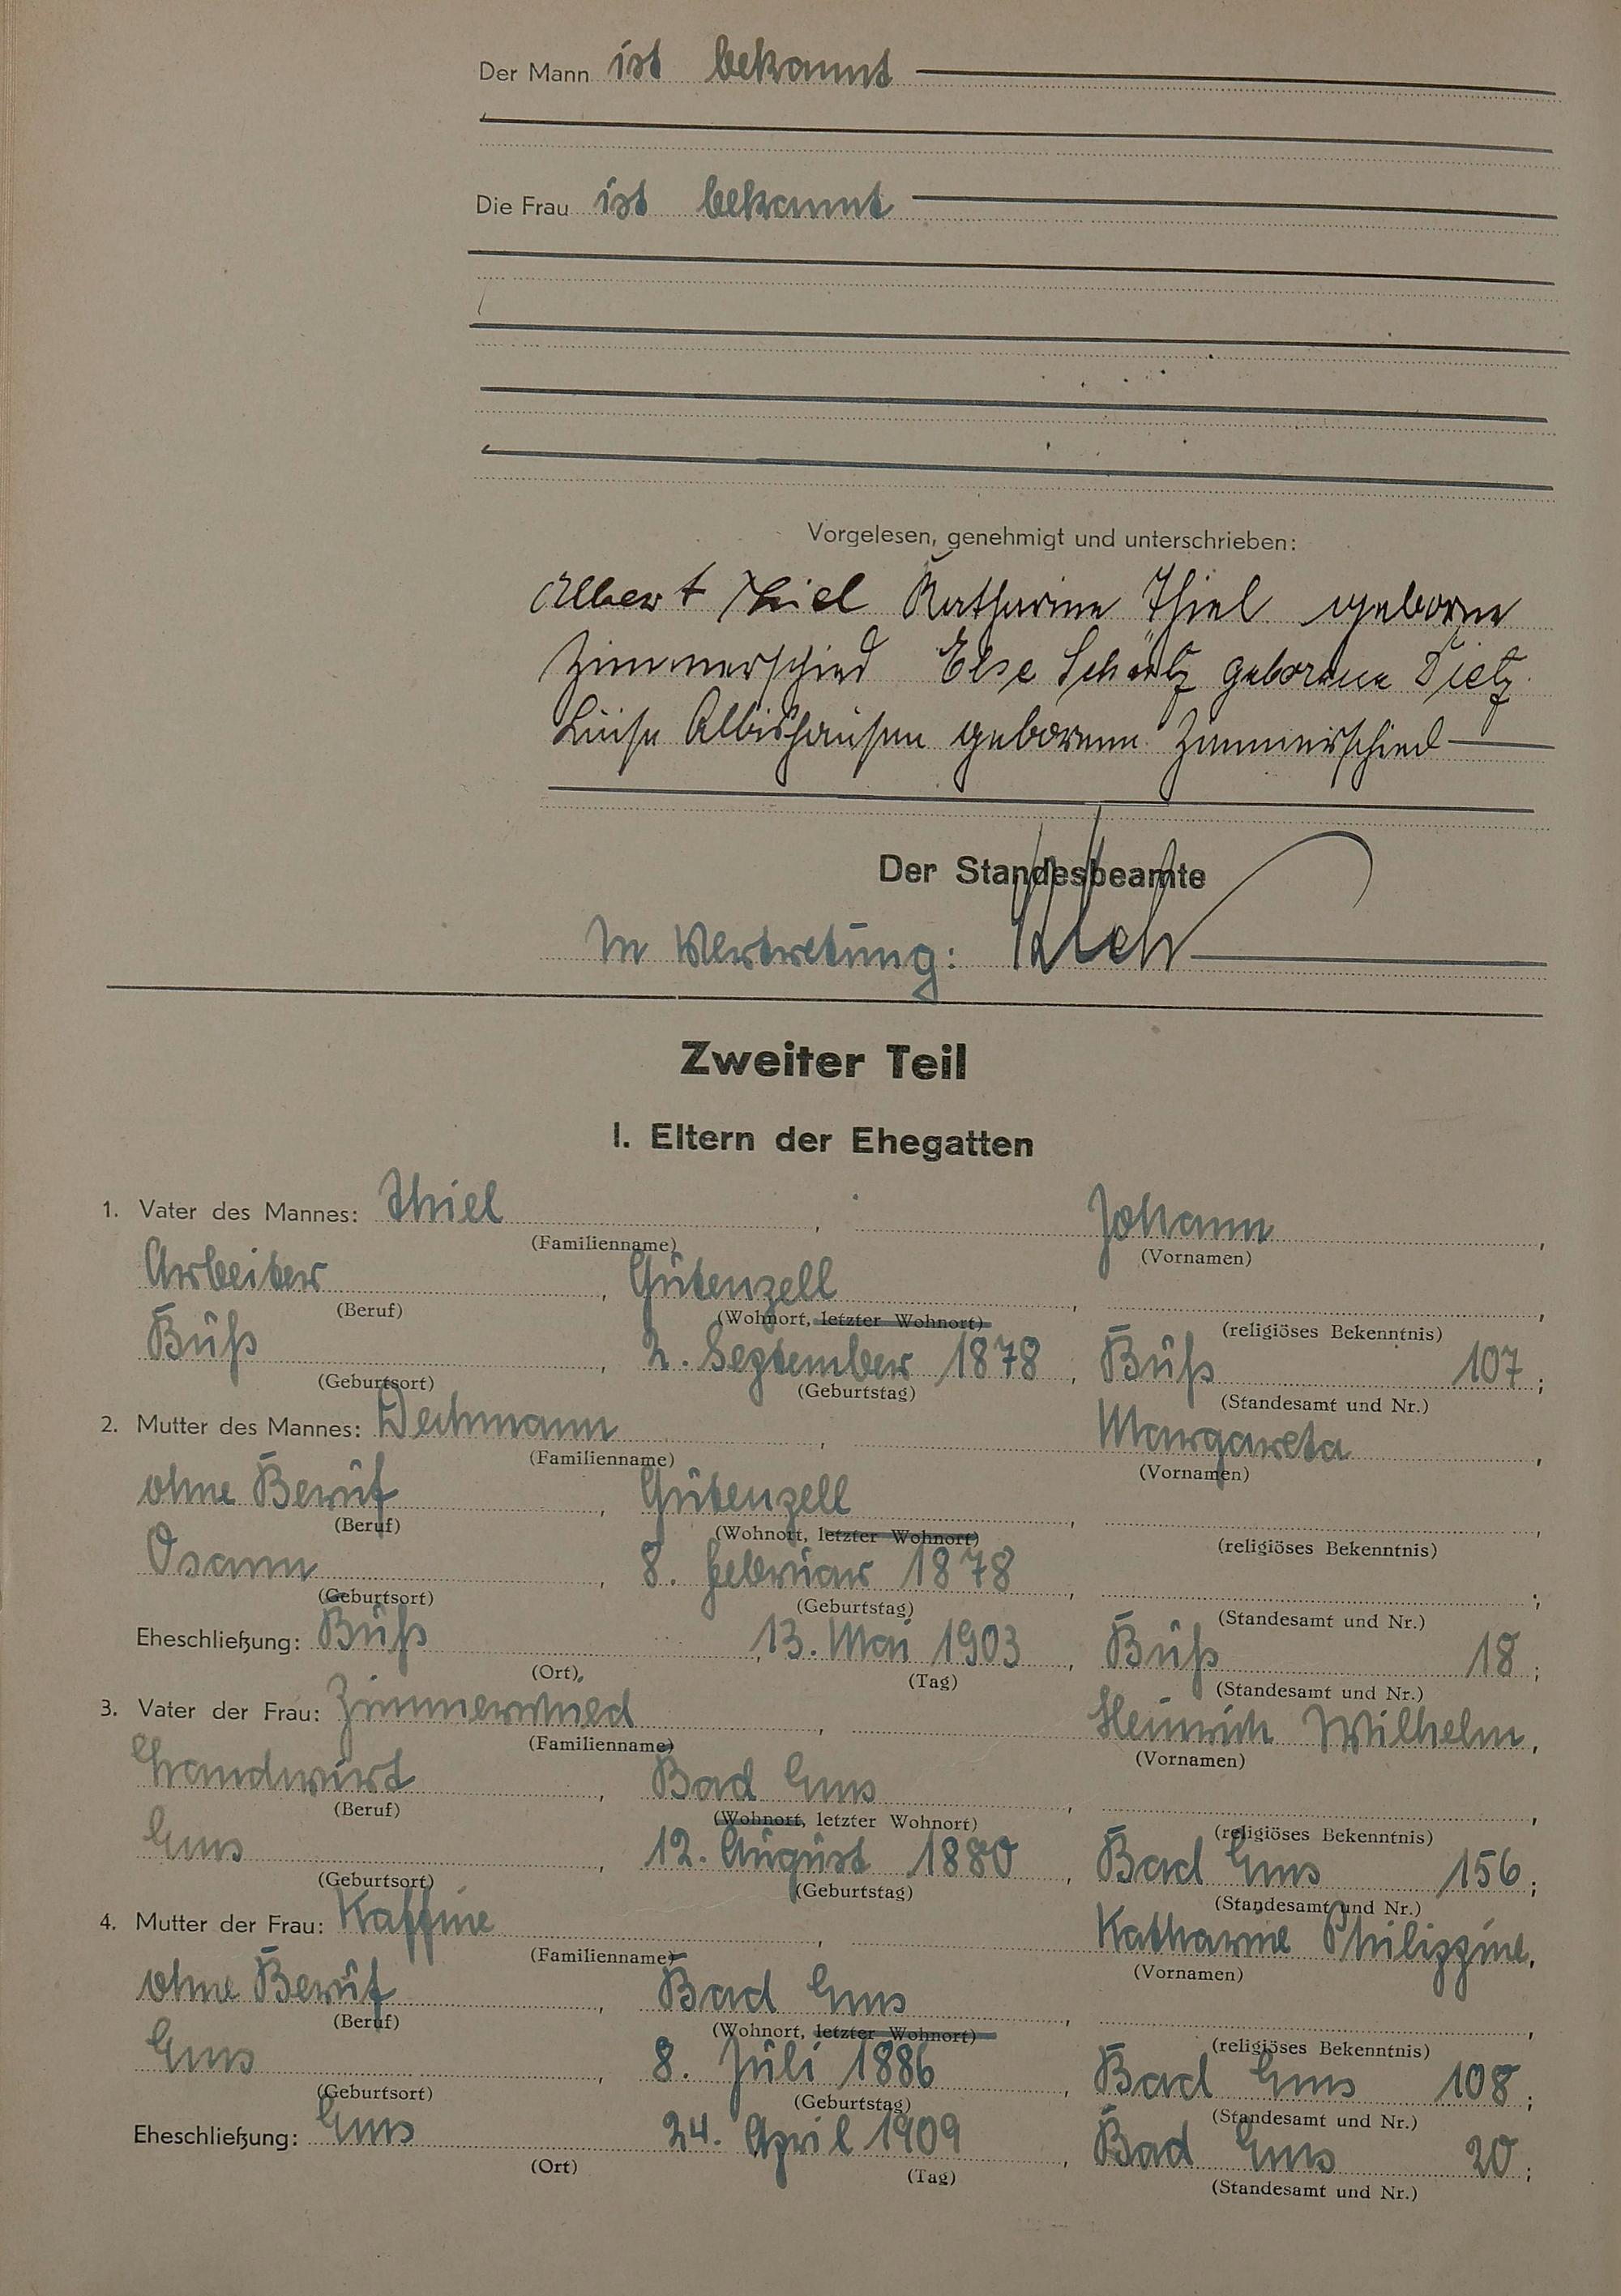 Der Mann ist bekannt
Die Frau ist bekannt
Vorgelesen, genehmigt und unterschrieben:
Albert Thiel Katharine Thiel geborene
Zimmerschied Else Schätz geborene Dietz
Luise Albishausen geborene Zimmerschied
Der Standesbeamte
In Vertretung:
Zweiter Teil
I. Eltern der Ehegatten
1. Vater des Mannes: Thiel , Johann ,
(Familienname) (Vornamen)
Arbeiter , Gutenzell , ,
(Beruf) (Wohnort, letzter Wohnort) (religiöses Bekenntnis)
Buß , 2. September 1878 , Buß 107 ;
(Geburtsort) (Geburtstag) (Standesamt und Nr.)
2. Mutter des Mannes: Dechmann , Margareta ,
(Familienname) (Vornamen)
ohne Beruf , Gutenzell , ,
(Beruf) (Wohnort, letzter Wohnort) (religiöses Bekenntnis)
Osann , 8. Februar 1878 , ;
(Geburtsort) (Geburtstag) (Standesamt und Nr.)
Eheschließung: Buß , 13. Mai 1903 , Buß 18 ;
(Ort) (Tag) (Standesamt und Nr.)
3. Vater der Frau: Zimmerschied , Heinrich Wilhelm ,
(Familienname) (Vornamen)
Landwirt , Bad Ems , ,
(Beruf) (Wohnort, letzter Wohnort) (religiöses Bekenntnis)
Ems , 12. August 1880 , Bad Ems 156 ;
(Geburtsort) (Geburtstag) (Standesamt und Nr.)
4. Mutter der Frau: Kaffine , Katharine Philippine ,
(Familienname) (Vornamen)
ohne Beruf , Bad Ems , ,
(Beruf) (Wohnort, letzter Wohnort) (religiöses Bekenntnis)
Ems , 8. Juli 1886 , Bad Ems 108 ;
(Geburtsort) (Geburtstag) (Standesamt und Nr.)
Eheschließung: Ems 24. April 1909 , Bad Ems 20 ;
(Ort) (Tag) (Standesamt und Nr.)